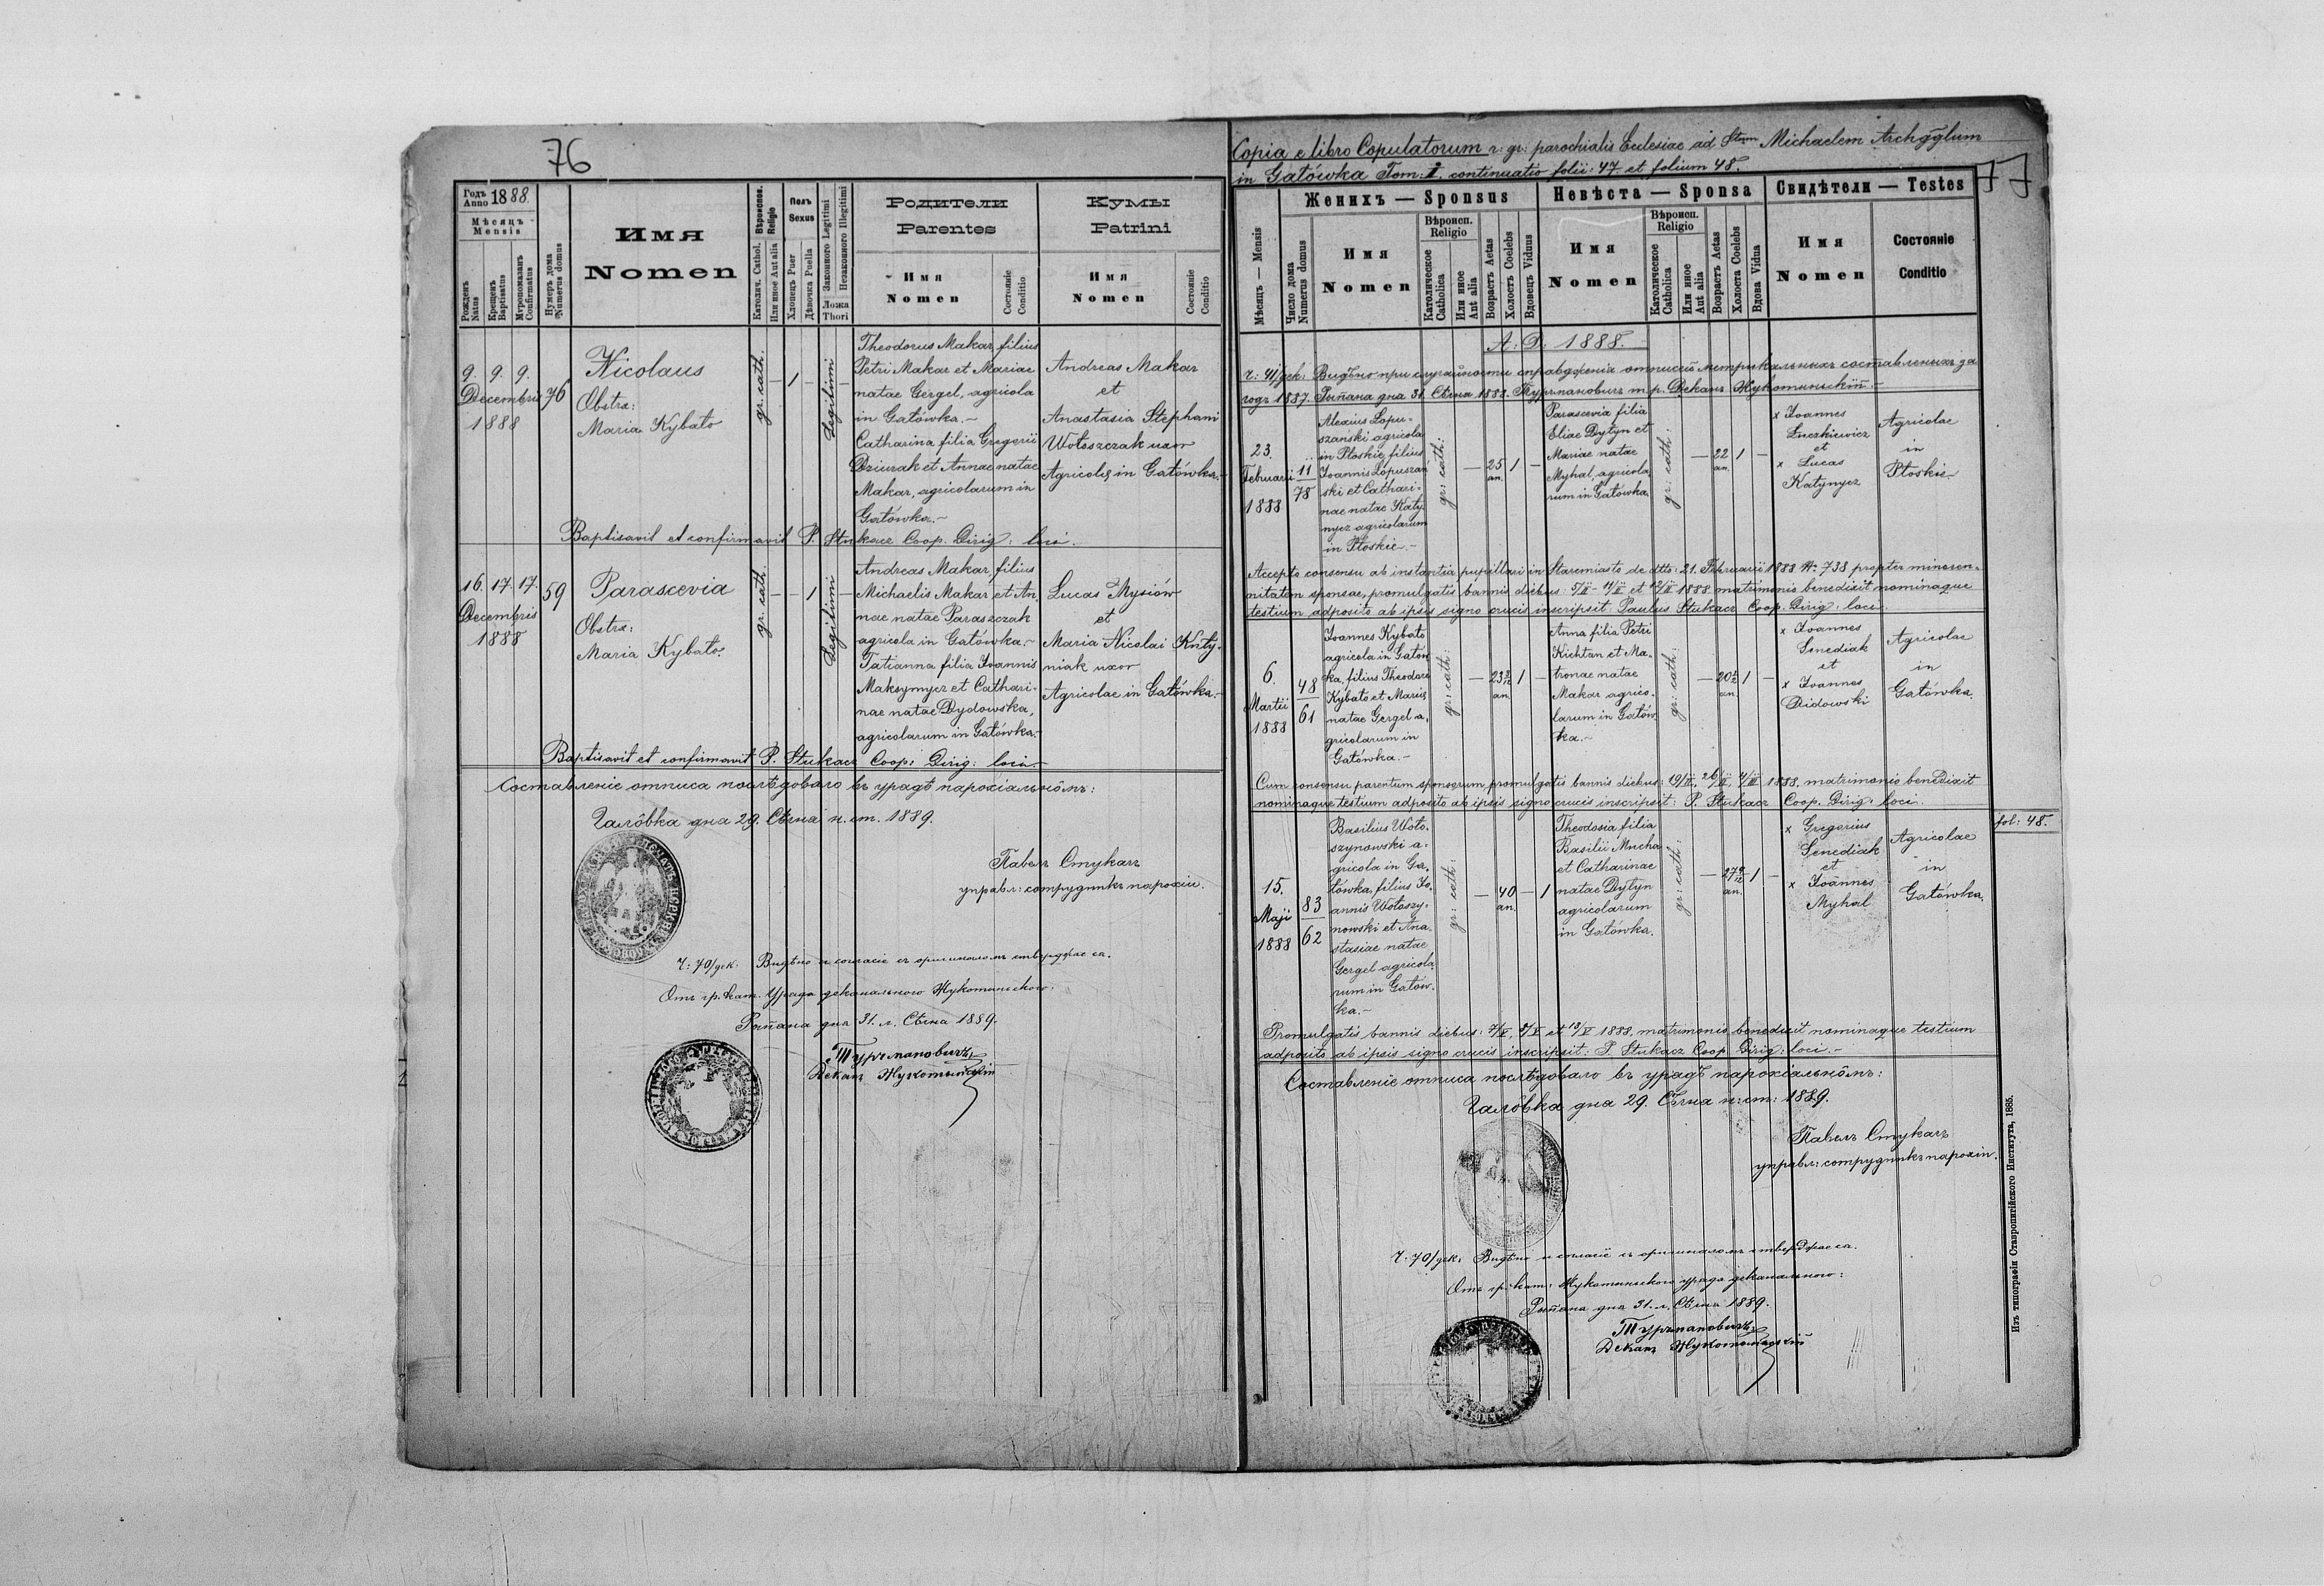 76
Годъ Anno 1888.
Мѣсяцъ Mensis
Рожденъ Natus
Крещенъ Baptisatus
Мѵропомазанъ Confirmatus
Нумеръ дома Numerus domus
Имя
Nomen
Вѣроиспов. Religio
Католич. Cathol.
Или иное Aut alia
Полъ Sexus
Хлопецъ Puer
Дѣвочка Puella
Законного Legitimi
Незаконного Illegitimi
Ложа Thori
Родители
Parentes
Имя
Nomen
Состояніе Conditio
Кумы
Patrini
Имя
Nomen
Состояніе Conditio
9. 9. 9.
Decembris
1888
76
Nicolaus
Obstx:
Maria Kybało
gr. cath.
– 1 –
Legitimi
Theodorus Makar, filius
Petri Makar et Mariae
natae Gergel, agricola
in Gałówka.–
Catharina filia Gregorii
Dziurak et Annae natae
Makar, agricolarum in
Gałówka.–
Andreas Makar
et
Anastasia Stephani
Wołoszczak uxor
Agricolae in Gałówka.–
Baptisavit et confirmavit P. Stukacz Coop. Dirig: loci.
16. 17. 17.
Decembris
1888
59
Parascevia
Obstx:
Maria Kybało.
gr. cath.
– – 1 –
Legitimi
Andreas Makar, filius
Michaelis Makar et An,
nae natae Paraszczak
agricola in Gałówka.–
Tatianna filia Ioannis
Maksymycz et Cathari-
nae natae Dydowska,
agricolarum in Gałówka.–
Lucas Mysiów
et
Maria Nicolai Knty-
niak uxor
Agricolae in Gałówka.–
Baptisavit et confirmavit P. Stukacz Coop: Dirig: loci.–
Составленіе отписа послѣдовало въ урядѣ парохіальнôмъ:
Галôвка дня 29. Сѣчня н. ст. 1889.
Павелъ Стукачъ
управл: сотрудникъ парохіи.
Ч: 70/дек. Видѣно и согласіе съ оригиналомъ стверджае ся.
Отъ гр. кат. Уряда деканального Жукотиньского.
Рипяна дня 31. л. Сѣчня 1889.
Турчмановичъ
Деканъ Жукотиньскій
Copia e libro Copulatorum r: gr: parochialis Ecclesiae ad Stum Michaelem Archgglum
in Gałówka Tom: I. continuatio folii: 47 et folium 48.
77
Женихъ — Sponsus
Невѣста — Sponsa
Свидѣтели — Testes
Мѣсяцъ — Mensis
Число дома Numerus domus
Имя
Nomen
Вѣроисп. Religio
Католическое Catholica
Или иное Aut alia
Возрастъ Aetas
Холостъ Coelebs
Вдовецъ Viduus
Имя
Nomen
Вѣроисп. Religio
Католическое Catholica
Или иное Aut alia
Возрастъ Aetas
Холоста Coelebs
Вдова Vidua
Имя
Nomen
Состояніе
Conditio
A: D: 1888.
ч: 41/дек: Видѣно при случайности справдженя отписей метрикальныхъ составленыхъ за
годъ 1887. Рипяна дня 31. Сѣчня 1888. Турчмановичъ т. р. Деканъ Жукотиньскій.–
23.
Februarii
1888
11
78
Alexius Łopu-
szanski agricola
in Płoskie, filius
Ioannis Łopuszań
ski et Cathari-
nae natae Katy-
nycz agricolarum
in Płoskie.–
gr: cath:
– 25 an. 1 –
Parascevia filia
Eliae Dytyn et
Mariae natae
Myhal, agricola
rum in Gałówka
gr: cath:
– 22 an. 1 –
x Ioannes
Luczkiewicz
et
x Lucas
Katynycz
Agricolae
in
Płoskie
Accepto consensu ab instantia pupillari in Staremiasto de dtto: 21. Februarii 1888 № 738 propter minoren-
nitatem sponsae, promulgatis bannis diebus: 5/II – 11/II et 12/II 1888 matrimonio benedixit nominaque
testium adposito ab ipsis signo crucis inscripsit Paulus Stukacz Coop. Dirig: loci.
6.
Martii
1888
48
61
Ioannes Kybało
agricola in Gałów
ka, filius Theodori
Kybało et Mariae
natae Gergel a,
gricolarum in
Gałówka.–
gr: cath:
– 23 an. 1 –
Anna filia Petri
Kichtan et Ma-
tronae natae
Makar agrico-
larum in Gałów
ka.–
gr: cath:
– 20 an. 1 –
x Ioannes
Senediak
et
x Ioannes
Didowski
Agricolae
in
Gałówka.
Cum consensu parentum sponsorum, promulgatis bannis diebus: 19/II, 26/II, 4/III 1888, matrimonio benedixit
nominaque testium adposito ab ipsis signo crucis inscripsit: P. Stukacz Coop. Dirig: loci.
fol: 48.
15.
Maji
1888
83
62
Basilius Woło-
szynowski a-
gricola in Ga,
łówka, filius Io,
annis Wołoszy-
nowski et Ana-
stasiae natae
Gergel agricola
rum in Gałów-
ka.–
gr: cath:
– 40 an. – 1
Theodosia filia
Basilii Mucha
et Catharinae
natae Dytyn
agricolarum
in Gałówka.
gr: cath:
– 27 an. 1 –
x Gregorius
Senediak
et
x Ioannes
Myhal
Agricolae
in
Gałówka.
Promulgatis bannis diebus: 7/V, 8/V et 13/V 1888, matrimonio benedixit nominaque testium
adposito ab ipsis signo crucis inscripsit: P. Stukacz Coop Dirig: loci.–
Составленіе отписа послѣдовало въ урядѣ парохіальнôмъ:
Галôвка дня 29. Сѣчня н: ст: 1889.
Павелъ Стукачъ
управл: сотрудникъ парохіи.
Ч: 70/дек: Видѣно и согласіе съ оригиналомъ стверджае ся.
Отъ гр: кат: Жукотиньского уряда деканального:
Рипяна дня 31. л. Сѣчня 1889.
Турчмановичъ
Деканъ Жукотиньскій
Изъ типографіи Ставропигійского Института, 1885.